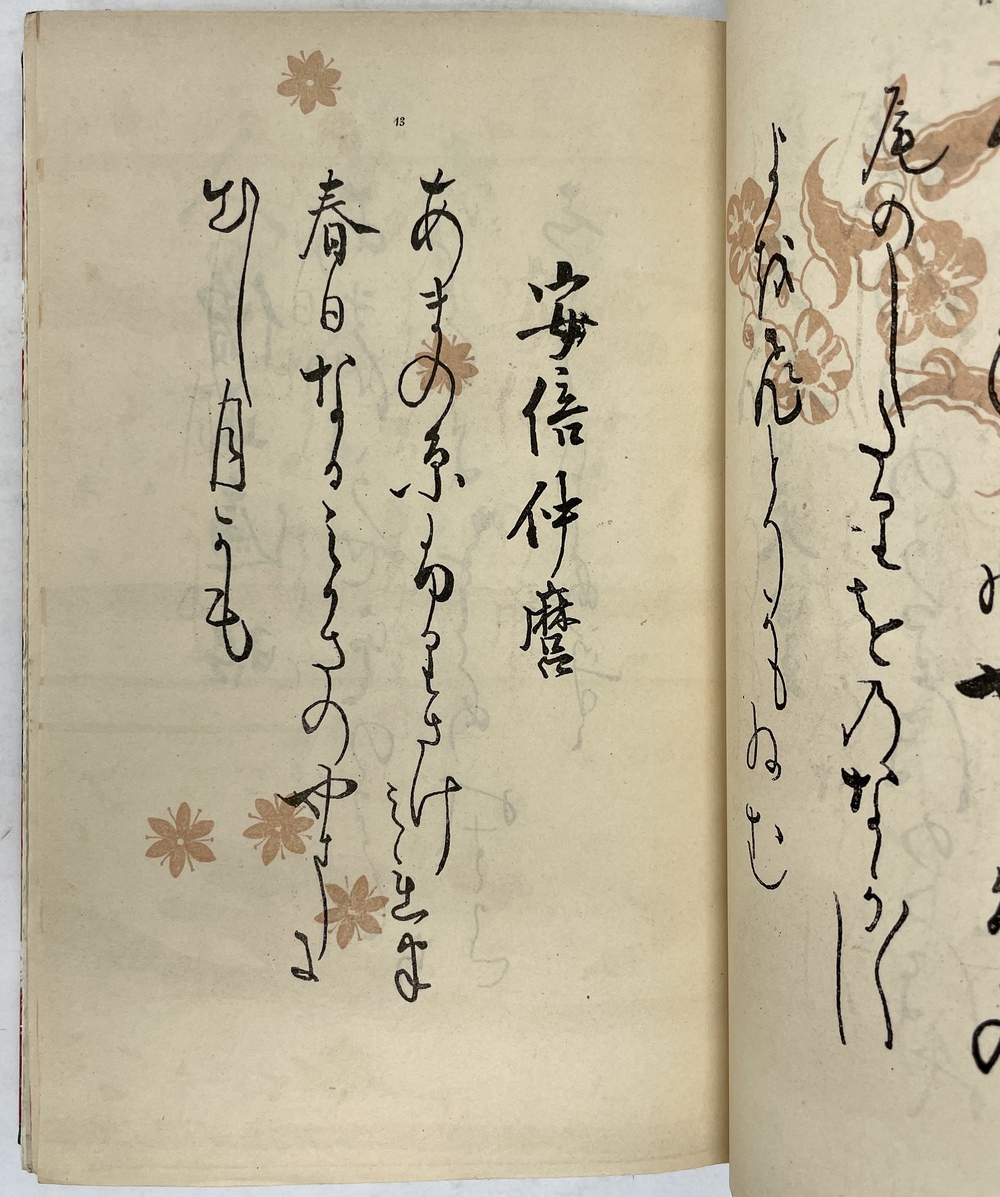 尾のしたりをのなか〱し
よをひとりかもねむ
13
安倍仲麿
あまの原ふりさけみれは
春日なるみかさのやまに
出し月かも